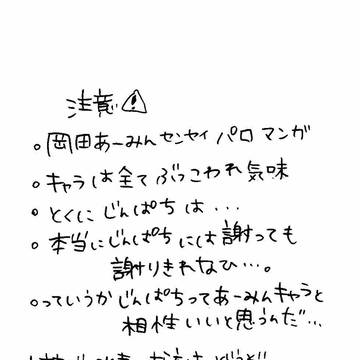 注意⚠
○岡田あーみんセンセイ パロ マンガ
○キャラは全てぶっこわれ気味
○とくにじんぱちは・・・
○本当にじんぱちには謝っても
謝りきれなひ…。
○っていうかじんぱちってあーみんキャラと
相性いいと思うんだ…